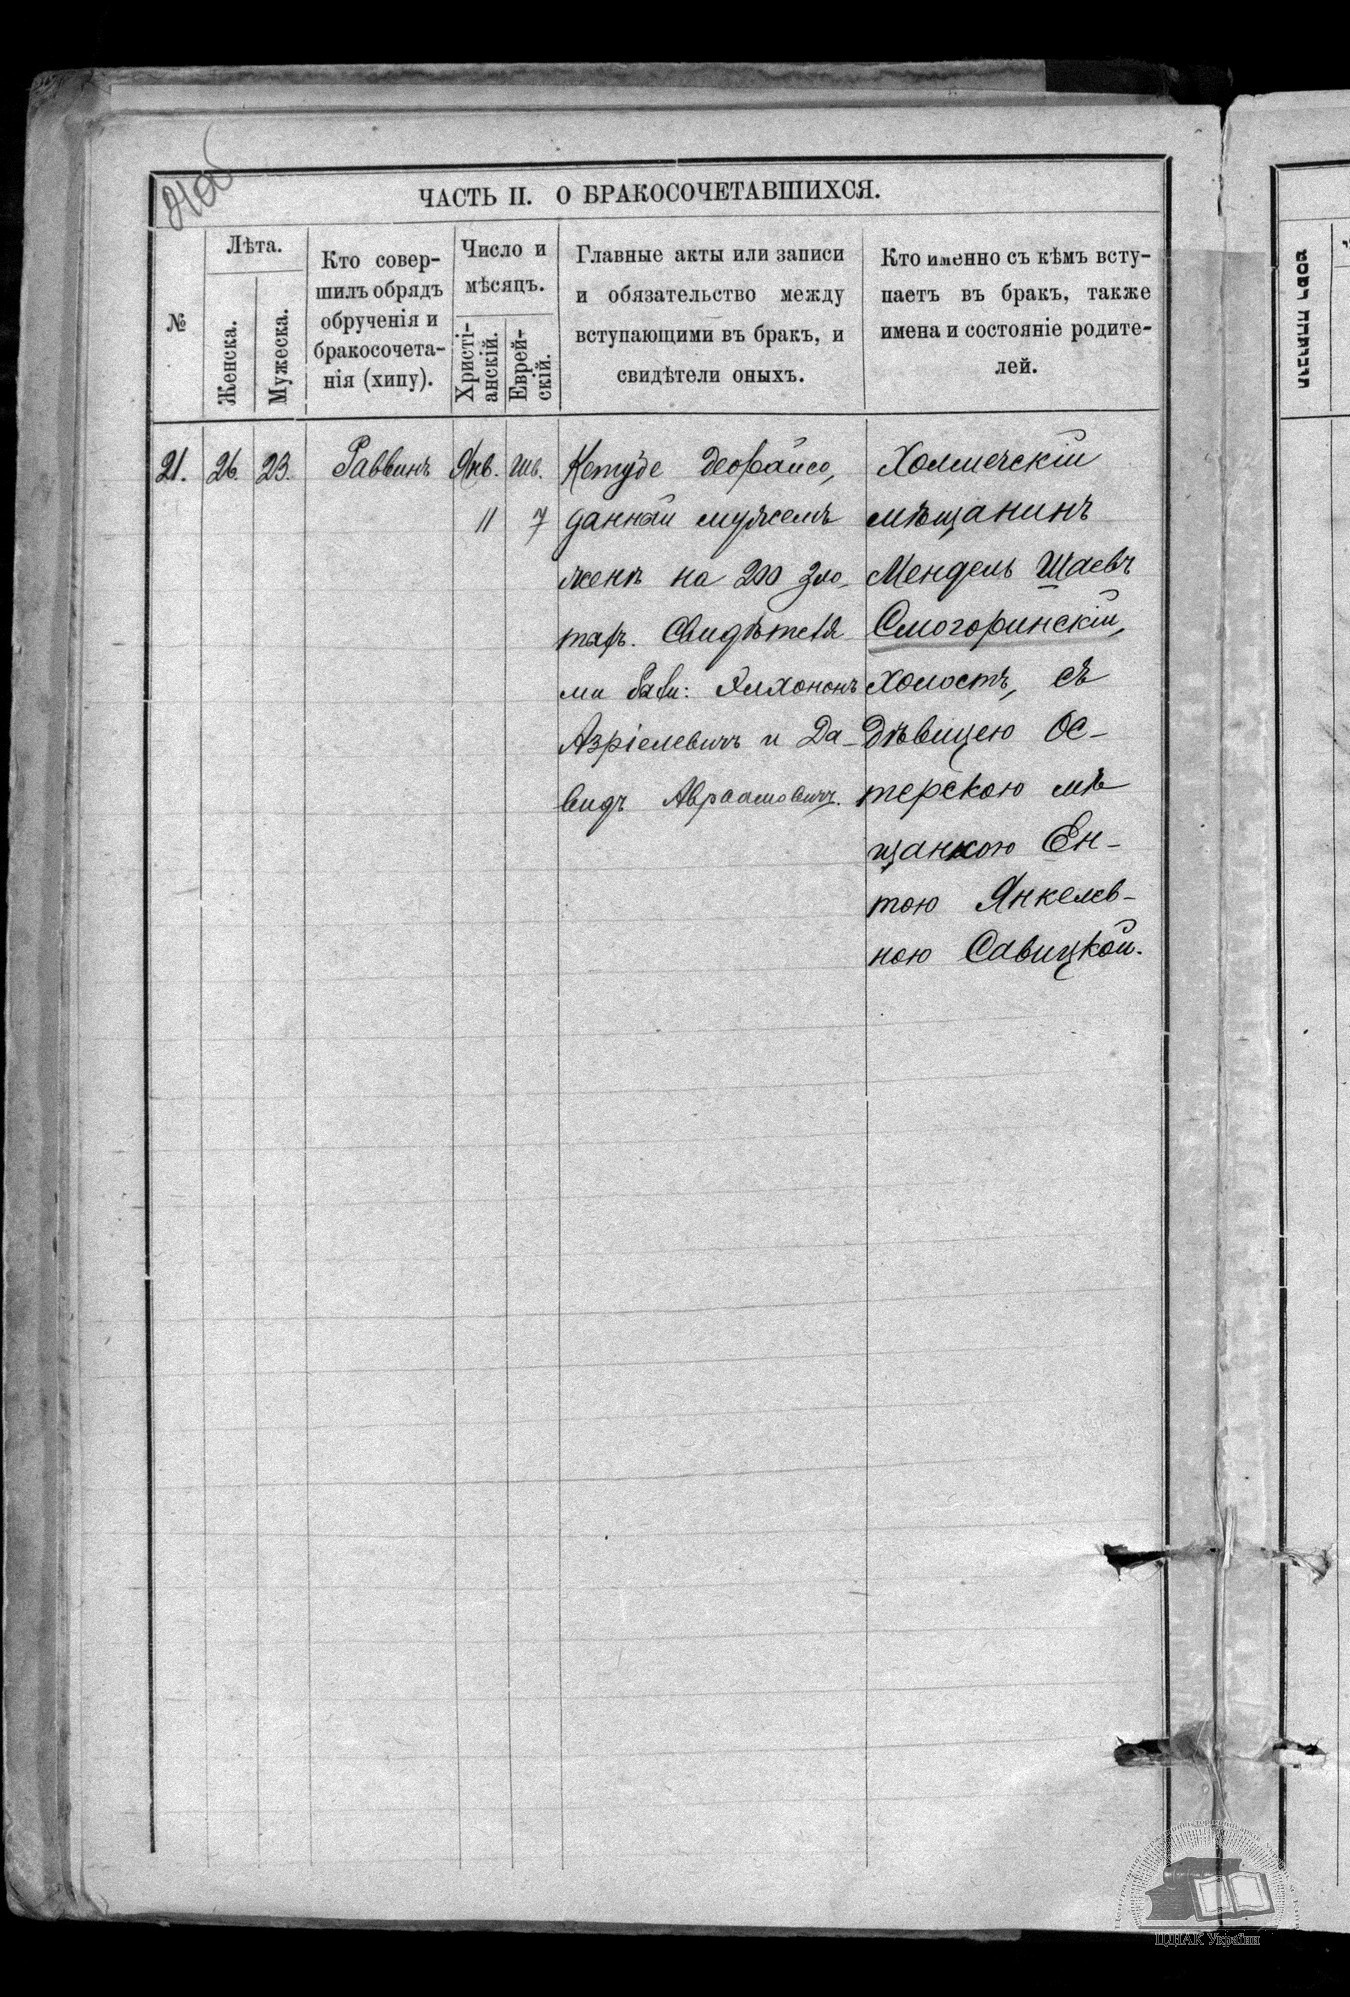 ЧАСТЬ II. О БРАКОСОЧЕТАВШИХСЯ.
№
Лѣта.
Женска.
Мужеска.
Кто совер-
шилъ обрядъ
обрученія и
бракосочета-
нія (хипу).
Число и
мѣсяцъ.
Христі-
анскій.
Еврей-
скій.
Главные акты или записи
и обязательство между
вступающими въ бракъ, и
свидѣтели оныхъ.
Кто именно съ кѣмъ всту-
паетъ въ бракъ, также
имена и состояніе родите-
лей.
21. 26. 23. Раввинъ Янв. Шв.
11 7
Кетубе деорайсо,
данный мужемъ
женѣ на 200 зло-
тыхъ. Свидѣтеля
ми были: Элхононъ
Азріелевичъ и Да-
видъ Авраамовичъ.
Холмечскій
мѣщанинъ
Мендель Шаевъ
Смогоринскій,
холостъ, съ
дѣвицею Ос-
терскою мѣ
щанкою Ен-
тою Янкелев-
ною Савицкой.
ЦДІАК України